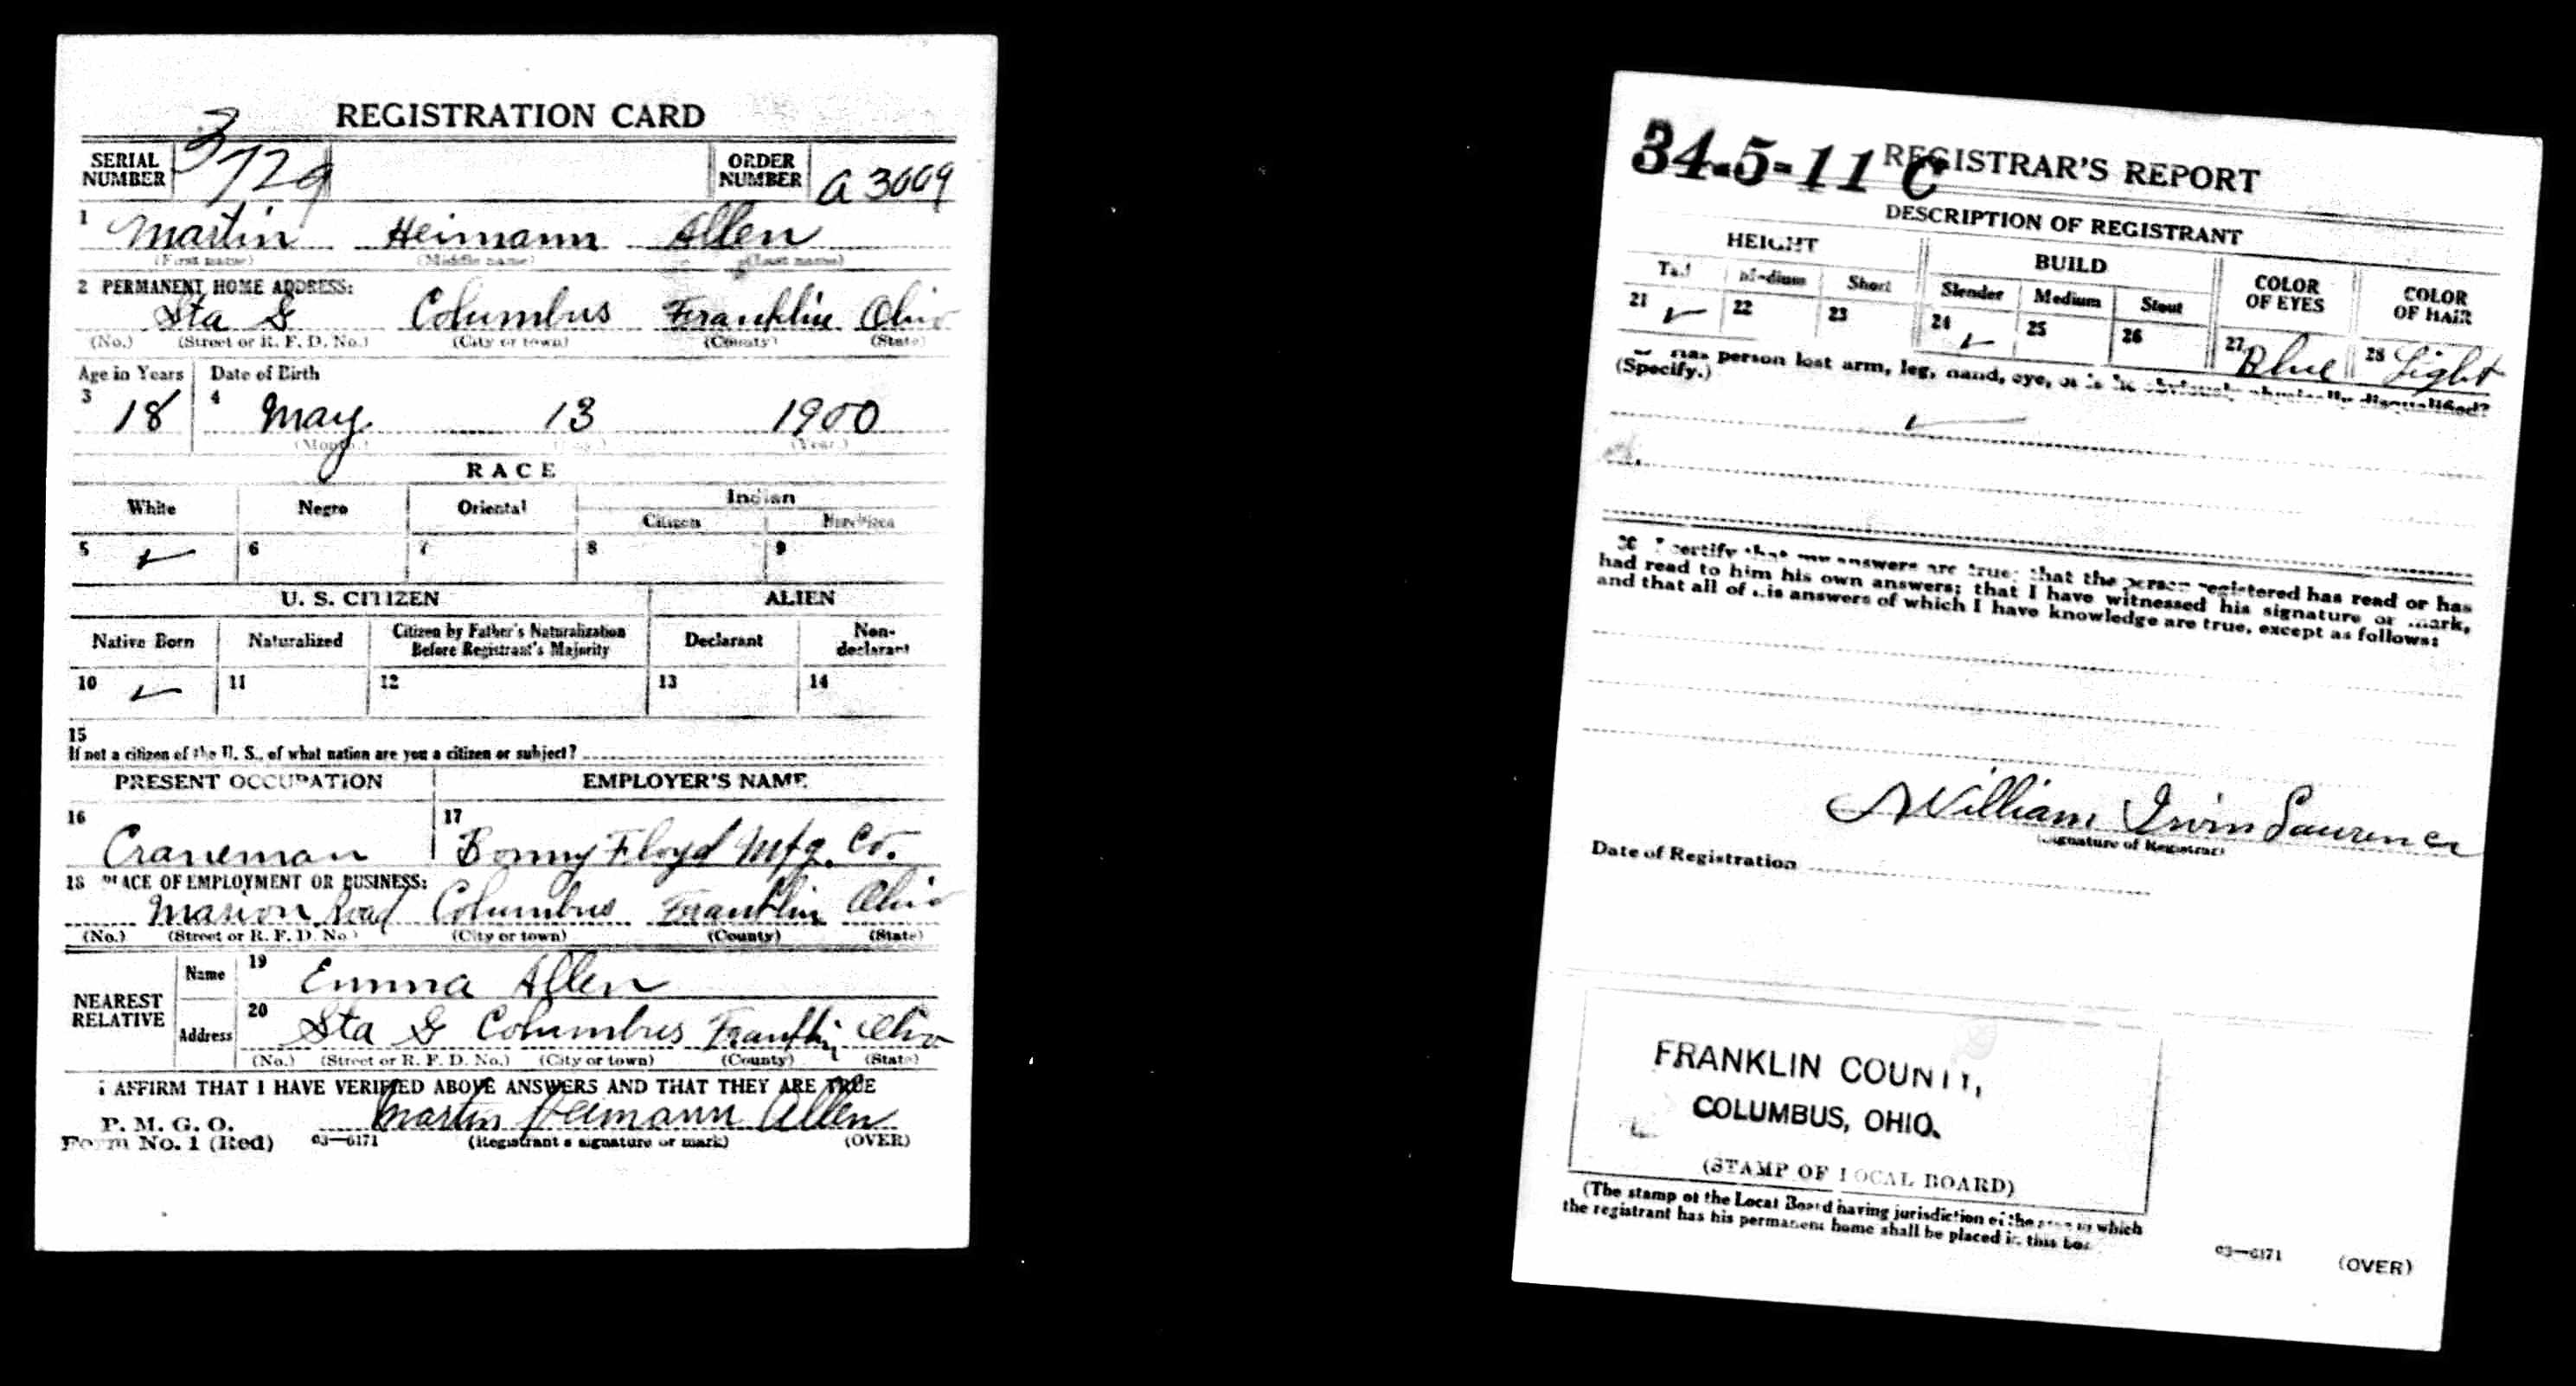 REGISTRATION CARD
SERIAL NUMBER 3729 ORDER NUMBER A 3009
1 Martin Heimann Allen
(First name) (Middle name) (Last name)
2 PERMANENT HOME ADDRESS:
Sta G Columbus Franklin Ohio
(No.) (Street or R. F. D. No.) (City or town) (County) (State)
Age in Years Date of Birth
3 18 4 May 13 1900
(Month.) (Day.) (Year.)
RACE
White Negro Oriental Indian
Citizen
5 ✓ 6 7 8 9
U. S. CITIZEN ALIEN
Native Born Naturalized Citizen by Father's Naturalization Before Registrant's Majority Declarant Non-declarant
10 ✓ 11 12 13 14
15
If not a citizen of the U. S., of what nation are you a citizen or subject?
PRESENT OCCUPATION EMPLOYER'S NAME
16 Craneman 17 Bonny Floyd Mfg. Co.
18 PLACE OF EMPLOYMENT OR BUSINESS:
Marion Road Columbus Franklin Ohio
(No.) (Street or R. F. D. No.) (City or town) (County) (State)
NEAREST RELATIVE
Name 19 Emma Allen
Address 20 Sta G Columbus Franklin Ohio
(No.) (Street or R. F. D. No.) (City or town) (County) (State)
I AFFIRM THAT I HAVE VERIFIED ABOVE ANSWERS AND THAT THEY ARE TRUE
P. M. G. O.
Form No. 1 (Red) 03—6171 Martin Heimann Allen
(Registrant's signature or mark) (OVER)
34-5-11 C REGISTRAR'S REPORT
DESCRIPTION OF REGISTRANT
HEIGHT BUILD COLOR OF EYES COLOR OF HAIR
Tall Medium Short Slender Medium Stout
21 ✓ 22 23 24 ✓ 25 26 27 Blue 28 Light
Has person lost arm, leg, hand, eye, or is he obviously physically disqualified?
(Specify.)
✓
30 I certify that my answers are true; that the person registered has read or has
had read to him his own answers; that I have witnessed his signature or mark,
and that all of his answers of which I have knowledge are true, except as follows:
William Irvin Laurence
(Signature of Registrar)
Date of Registration
FRANKLIN COUNTY,
COLUMBUS, OHIO.
(STAMP OF LOCAL BOARD)
(The stamp of the Local Board having jurisdiction of the area in which
the registrant has his permanent home shall be placed in this box.
03—6171 (OVER)